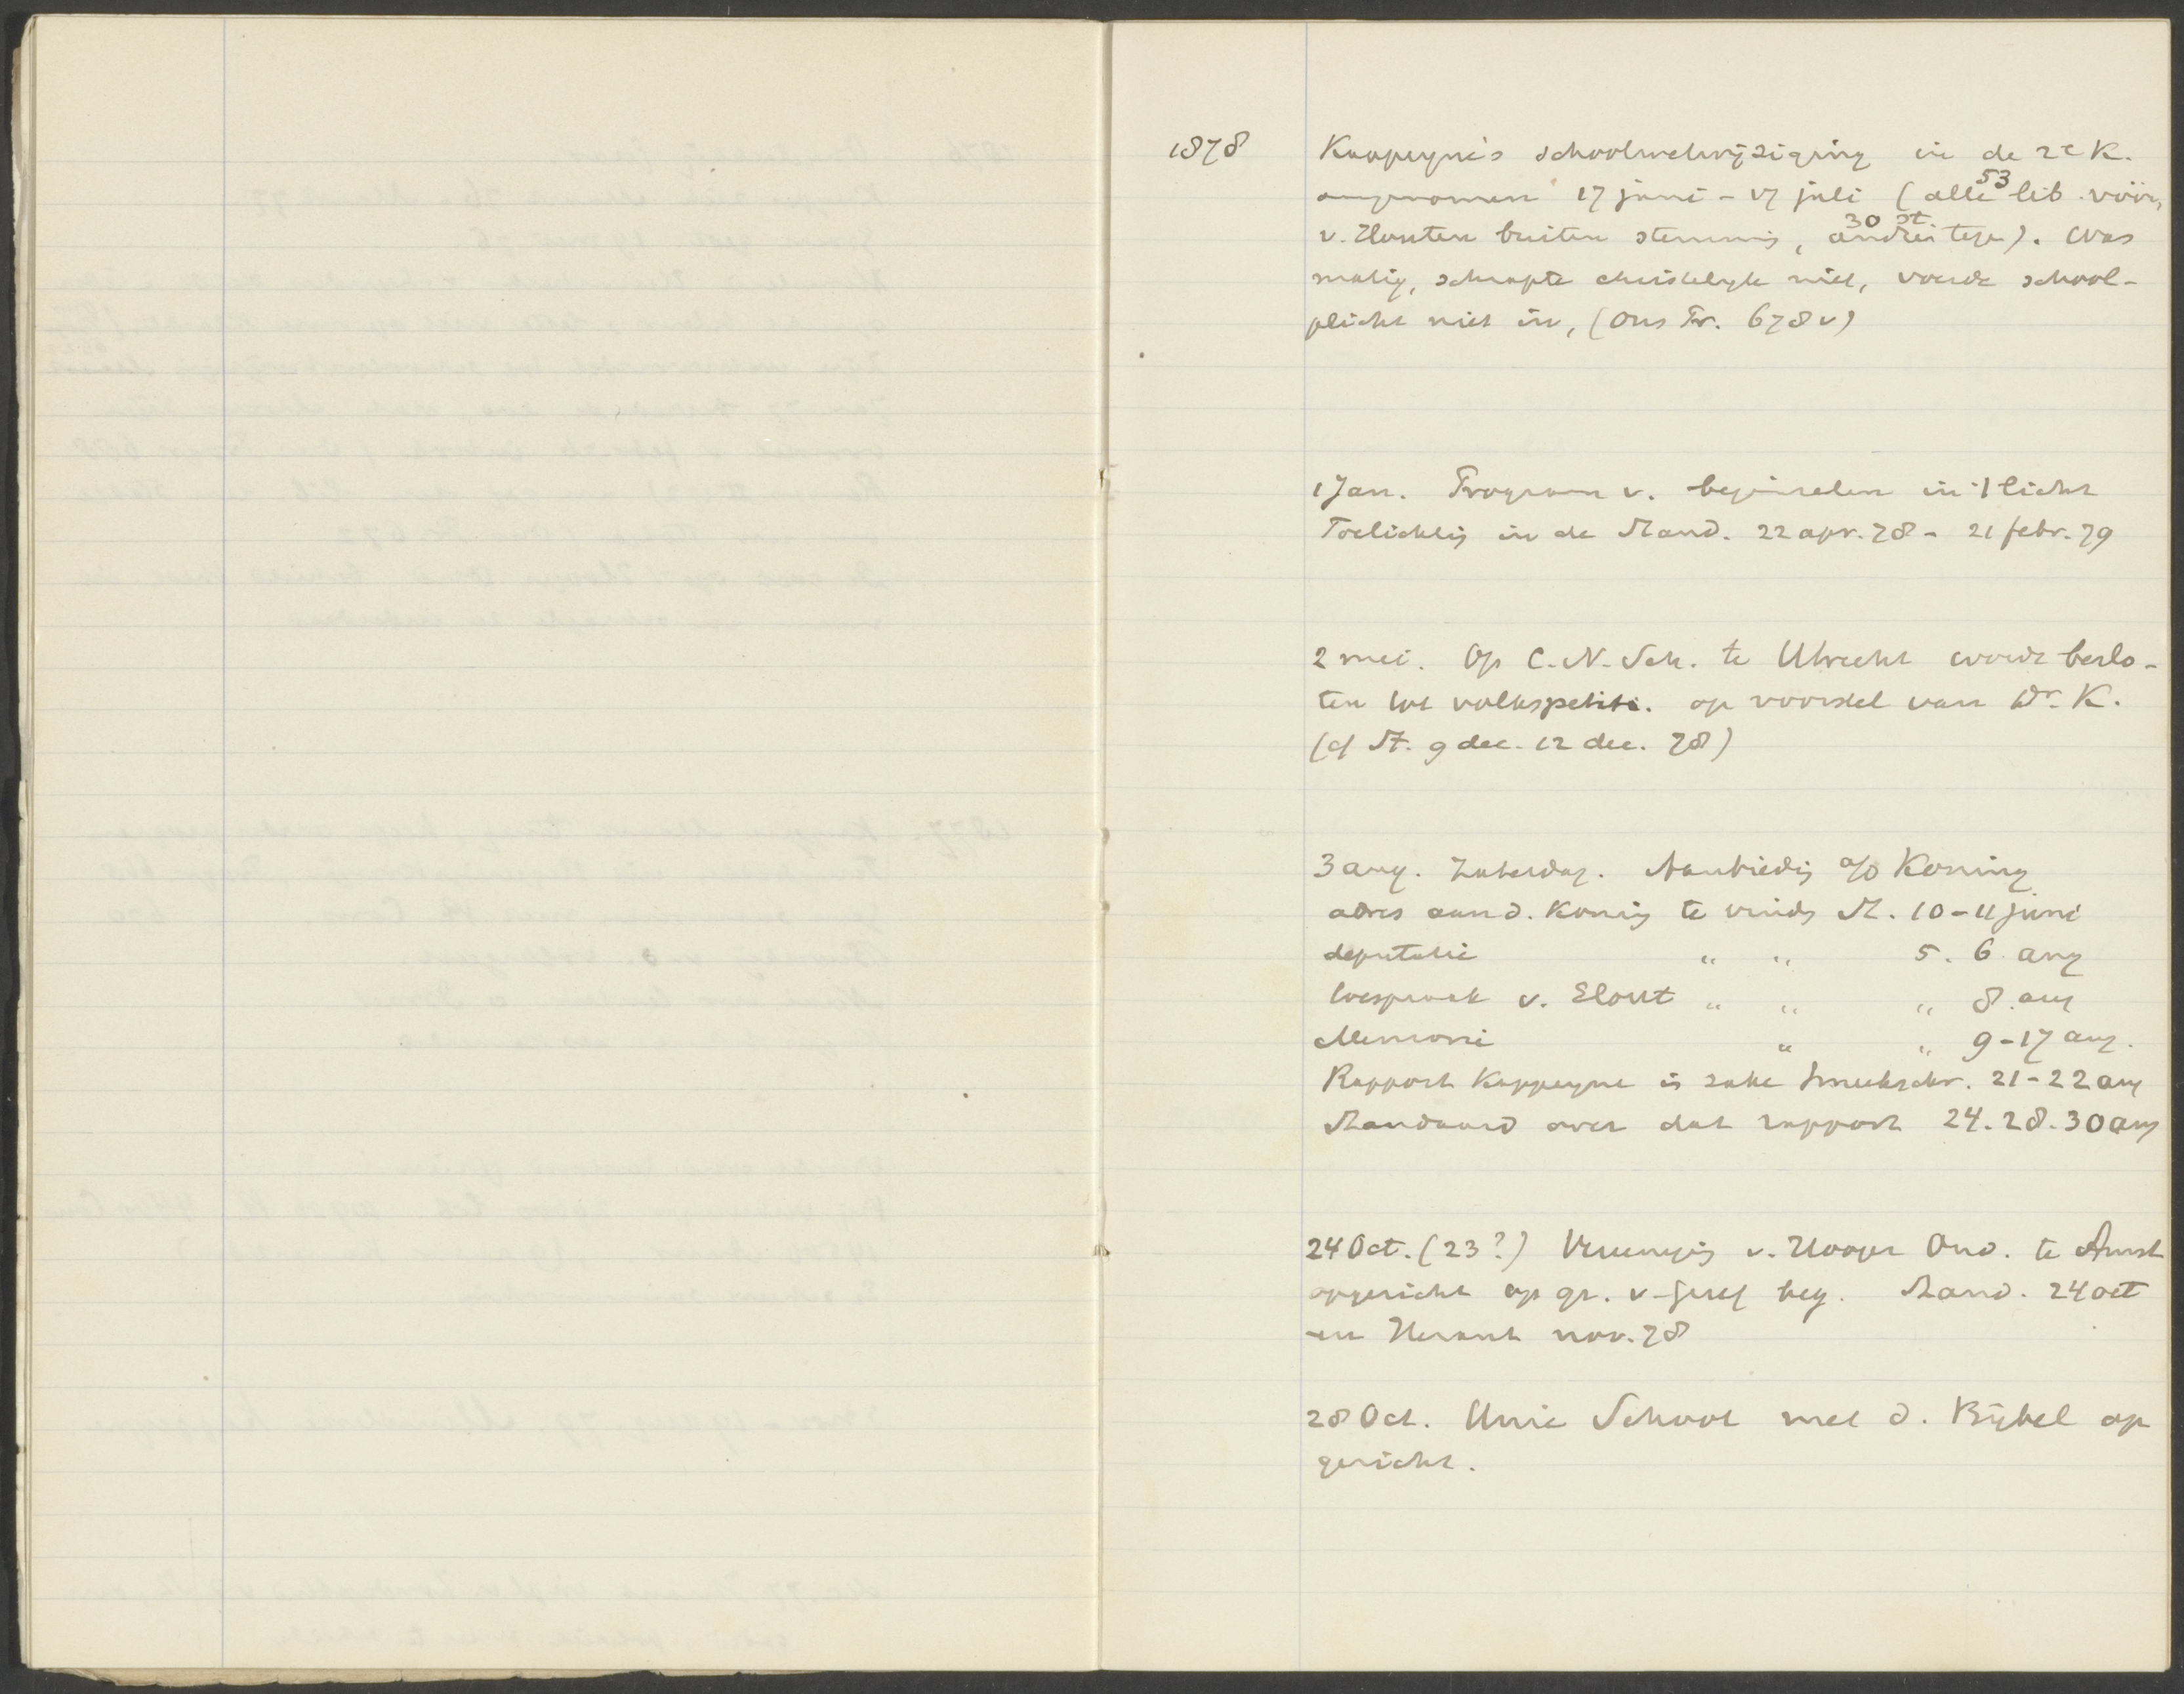 1878 Kappeyne's schoolwetwijziging in de 2e K.
aangenomen 17 juni - 17 juli (alle 53 lib. vóór,
v. Houten buiten stemming, andren 30 st. tegen). Was
matig, schrapte christelijk niet, voerde school-
plicht niet in, (Ons Pr. 678 v)
1 Jan. Program v. beginselen in 't licht
Toelichtig in de Stand. 22 apr. 78 - 21 febr. 79
2 mei. Op C.N.Sch. te Utrecht wordt beslo-
ten tot volkspetitie. op voorstel van Dr. K.
(cf St. 9 dec. 12 dec. 78)
3 aug. Zaterdag. Aanbiedig a/d Koning
adres aan d. Konig te vinds St. 10-11 juni
deputatie " " 5. 6. aug
toespraak v. Elout " " " 8. aug
Memorie " " 9-17 aug.
Rapport Kappeyne in zake Smeekschr. 21-22 aug
Standaard over dat rapport 24. 28. 30 aug
24 Oct. (23?) Vereenigig v. Hooger Ond. te Amst
opgericht op gr. v. geref beg. Stand. 24 oct
en Heraut nov. 78
28 Oct. Unie School met d. Bijbel op
gericht.